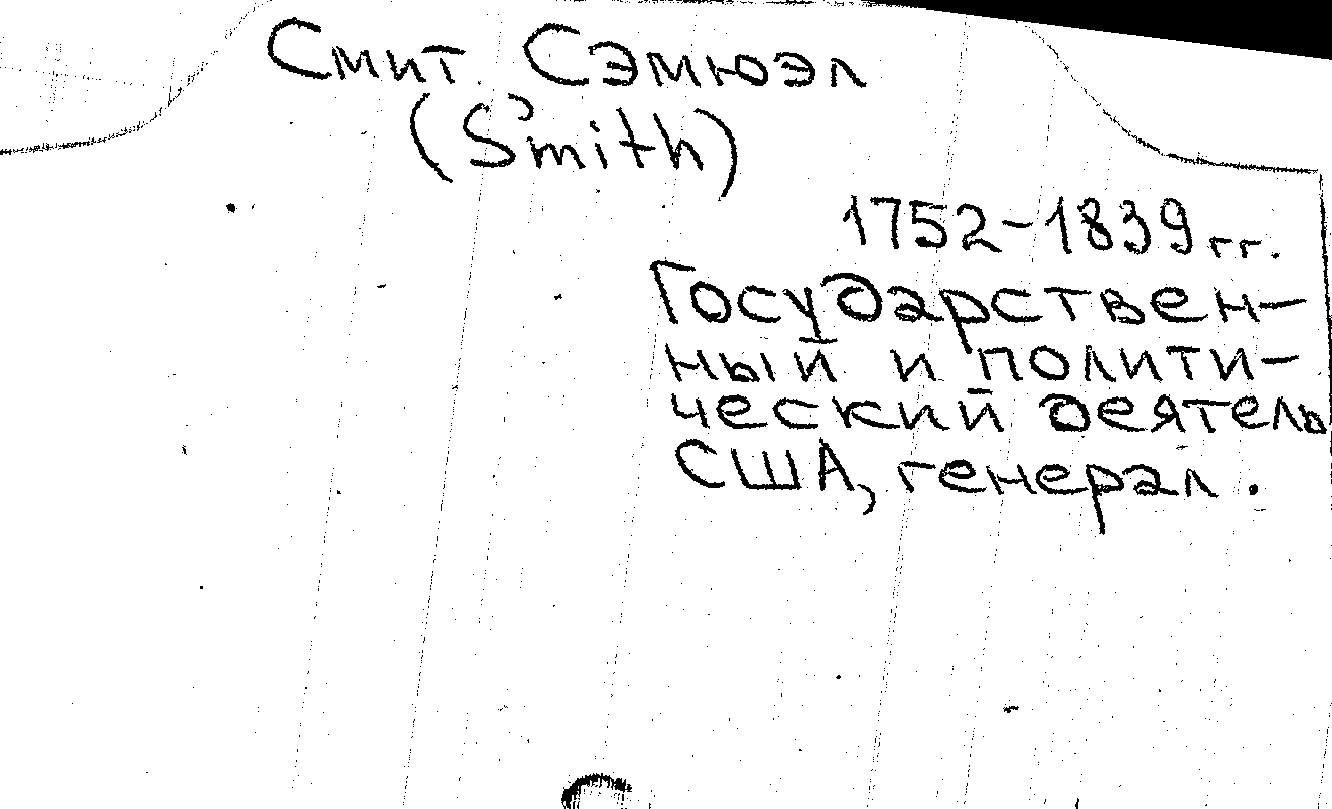 Смит. Сэмюэл
(Smith)
1752-1839 гг.
Государствен-
ный и полити-
ческий деятель
США, генерал.